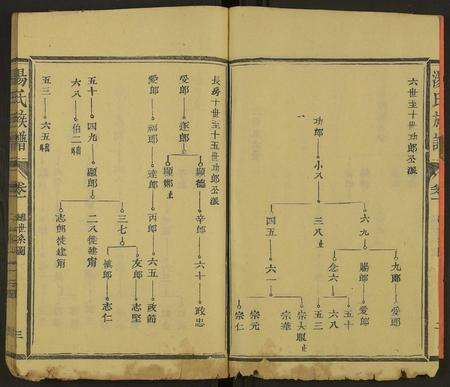 湯氏族譜
卷一
六世至十世功郎公派
功郎
小八
六九
三八止
四五
九郎
勝郎
念六
六一
爱郎
爱郎
五十
六八
五三
宗大
宗華
宗元
宗仁
長房十世至十五世功郎公派
爱郎
逐郎
顯德
顯郎止
辛郎
六十
政忠
爱郎
福郎
達郎
丙郎
六五
政簡
五十
四九
顯郎
三七
友郎
志堅
志仁
二八徙建甯
志郎徙建甯
六八
伯二
五三
六五
湯氏族譜
卷一
世系圖
三